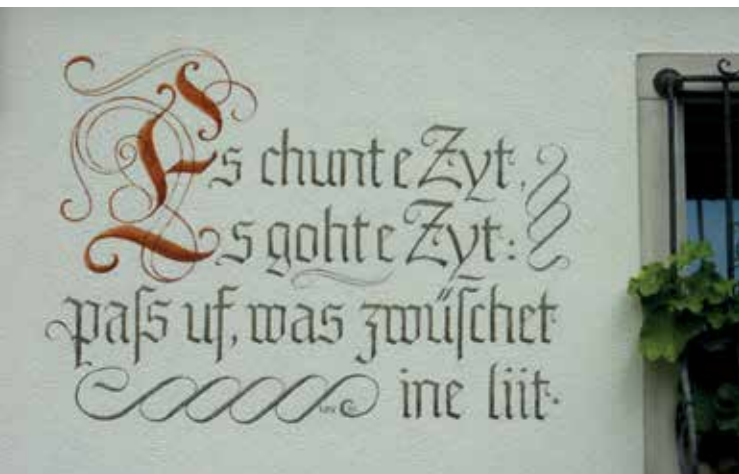 Es chunt e Zyt,
Es goht e Zyt:
paſs uf, was zwüſchet
ine liit.